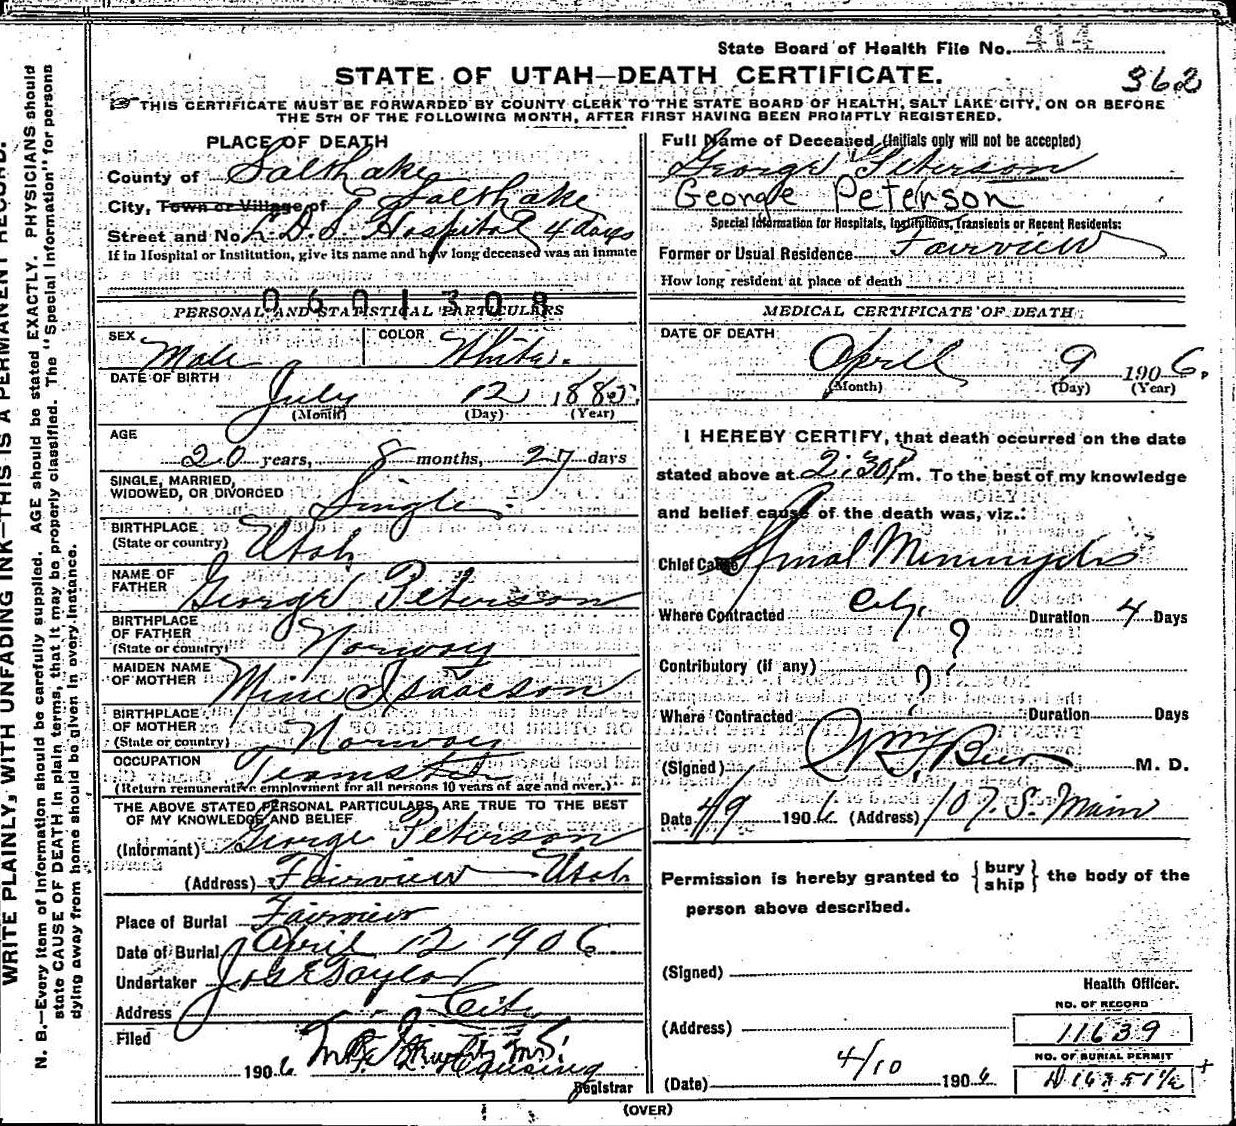 State Board of Health File No. 414
STATE OF UTAH—DEATH CERTIFICATE.
362
THIS CERTIFICATE MUST BE FORWARDED BY COUNTY CLERK TO THE STATE BOARD OF HEALTH, SALT LAKE CITY, ON OR BEFORE
THE 5TH OF THE FOLLOWING MONTH, AFTER FIRST HAVING BEEN PROMPTLY REGISTERED.
WRITE PLAINLY, WITH UNFADING INK—THIS IS A PERMANENT RECORD.
N. B.—Every item of information should be carefully supplied. AGE should be stated EXACTLY. PHYSICIANS should
state CAUSE OF DEATH in plain terms, that it may be properly classified. The "Special Information" for persons
dying away from home should be given in every instance.
PLACE OF DEATH
County of Salt Lake
City, Town or Village of Salt Lake
Street and No. L.D.S Hospital 4 days
If in Hospital or Institution, give its name and how long deceased was an inmate
0601308
PERSONAL AND STATISTICAL PARTICULARS
SEX Male COLOR White.
DATE OF BIRTH July 12 1885
(Month) (Day) (Year)
AGE
20 years, 8 months, 27 days
SINGLE, MARRIED,
WIDOWED, OR DIVORCED Single
BIRTHPLACE
(State or country) Utah
NAME OF
FATHER George Peterson
BIRTHPLACE
OF FATHER
(State or country) Norway
MAIDEN NAME
OF MOTHER Mine Isaacson
BIRTHPLACE
OF MOTHER
(State or country) Norway
OCCUPATION Teamster
(Return remunerative employment for all persons 10 years of age and over.)
THE ABOVE STATED PERSONAL PARTICULARS ARE TRUE TO THE BEST
OF MY KNOWLEDGE AND BELIEF
(Informant) George Peterson
(Address) Fairview Utah
Place of Burial Fairview
Date of Burial April 12 1906
Undertaker Jos E Taylor
Address City
Filed
1906
Registrar
Full Name of Deceased (Initials only will not be accepted)
George Peterson
George Peterson
Special Information for Hospitals, Institutions, Transients or Recent Residents:
Former or Usual Residence Fairview
How long resident at place of death
MEDICAL CERTIFICATE OF DEATH
DATE OF DEATH
April 9 1906.
(Month) (Day) (Year)
I HEREBY CERTIFY, that death occurred on the date
stated above at 2:30 P m. To the best of my knowledge
and belief cause of the death was, viz.:
Chief Cause Spinal Meningitis
Where Contracted City. Duration 4 Days
Contributory (if any) ?
Where Contracted ? Duration Days
(Signed) M. D.
Date 4/9 1906 (Address) 107. S. Main
Permission is hereby granted to {bury ship} the body of the
person above described.
(Signed)
Health Officer.
NO. OF RECORD
(Address) 11639
NO. OF BURIAL PERMIT
(Date) 4/10 1906
(OVER)